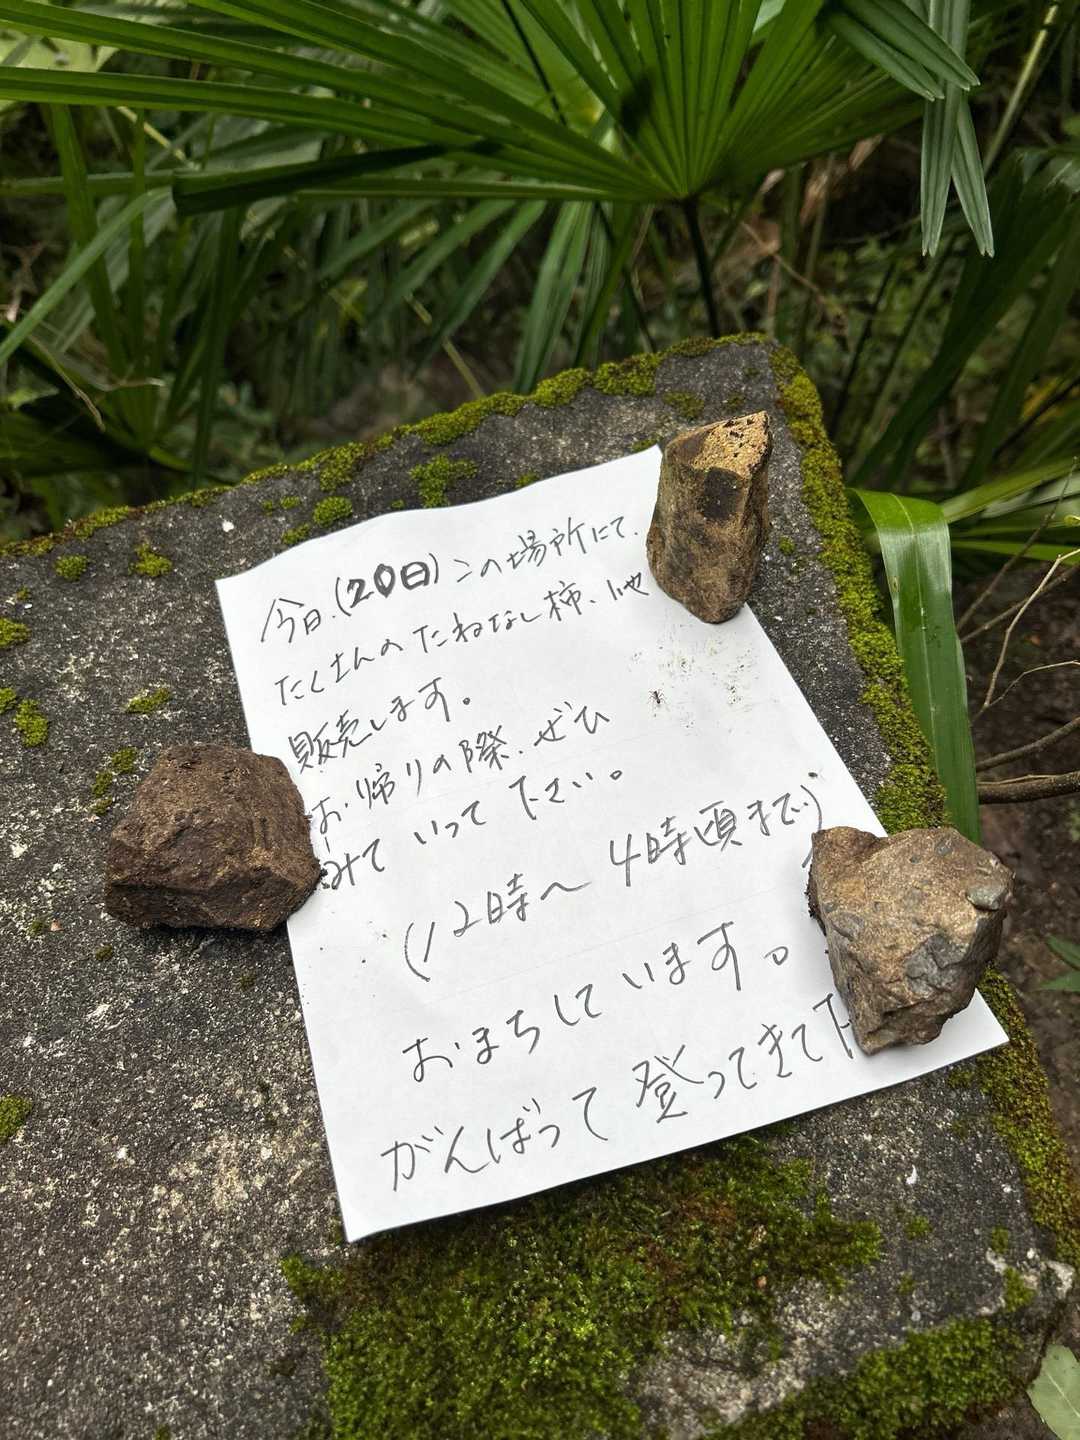 今日.(20日)この場所にて、
たくさんのたねなし柿、他
販売します。
お帰りの際、ぜひ
みていって下さい。
(12時〜4時頃まで)
おまちしています。
がんばって登ってきて下